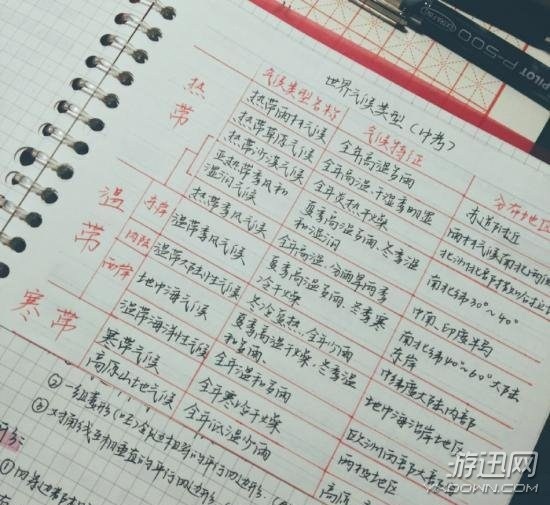 PILOT P-500
世界气候类型（中考）
气候类型名称 气候特征 分布地区
热带
热带雨林气候 全年高温多雨 赤道附近
热带草原气候 全年高温，干湿季明显 雨林气候南北两侧
热带沙漠气候 全年炎热干燥
亚热带季风和湿润气候 夏季高温多雨，冬季温和湿润 南北纬30°~40°
热带季风气候 全年高温，分雨旱两季 中南、印度半岛
温带
东岸 温带季风气候 夏季高温多雨，冬季寒冷干燥 南北纬40°~60°大陆东岸
内陆 温带大陆性气候 冬冷夏热，全年少雨 中纬度大陆内部
西岸 地中海气候 夏季高温干燥，冬季温和多雨 地中海沿岸地区
温带海洋性气候 全年温和多雨 欧洲西部
寒带
寒带气候 全年寒冷干燥 两极地区
高原山地气候 全年低温少雨 高原
② 一组菱形
③ 对角线互相垂直的平行四边形
①
游迅网
YXDOWN.COM